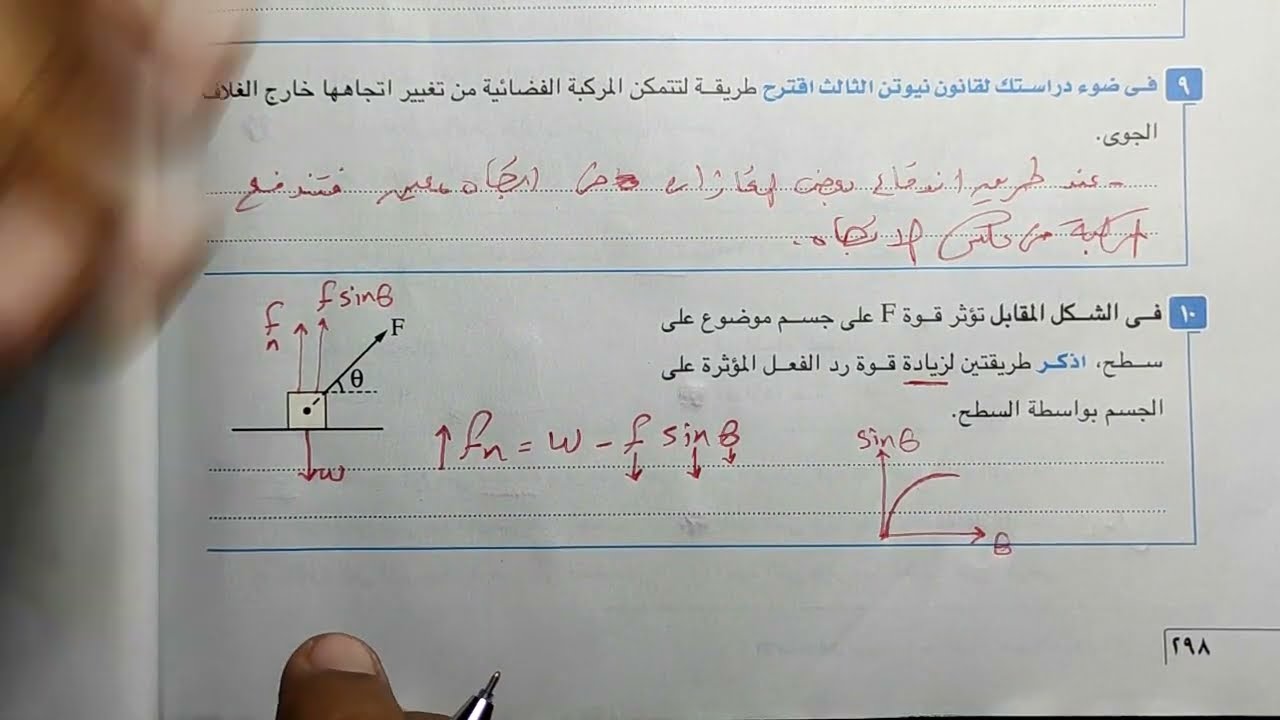 ٩ فى ضوء دراستك لقانون نيوتن الثالث اقترح طريقة لتتمكن المركبة الفضائية من تغيير اتجاهها خارج الغلاف
الجوى.
- عند طريق اندفاع بعض الغازات من اتجاه معين فتندفع
المركبة من عكس الاتجاه.
١٠ فى الشكل المقابل تؤثر قوة F على جسم موضوع على
سطح، اذكر طريقتين لزيادة قوة رد الفعل المؤثرة على
الجسم بواسطة السطح.
f sinθ
fn
F
θ
w
fn = w - f sin θ
sinθ
θ
٢٩٨